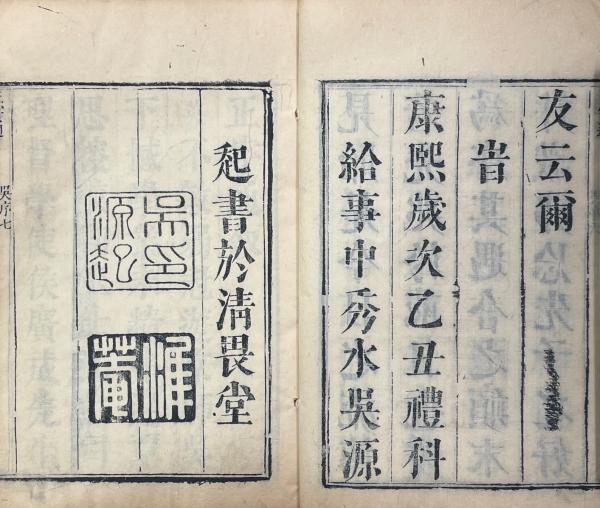 友云爾
旹
康熙歲次乙丑禮科
給事中秀水吳源
起書於清畏堂
吳印源起
菴
吳序七